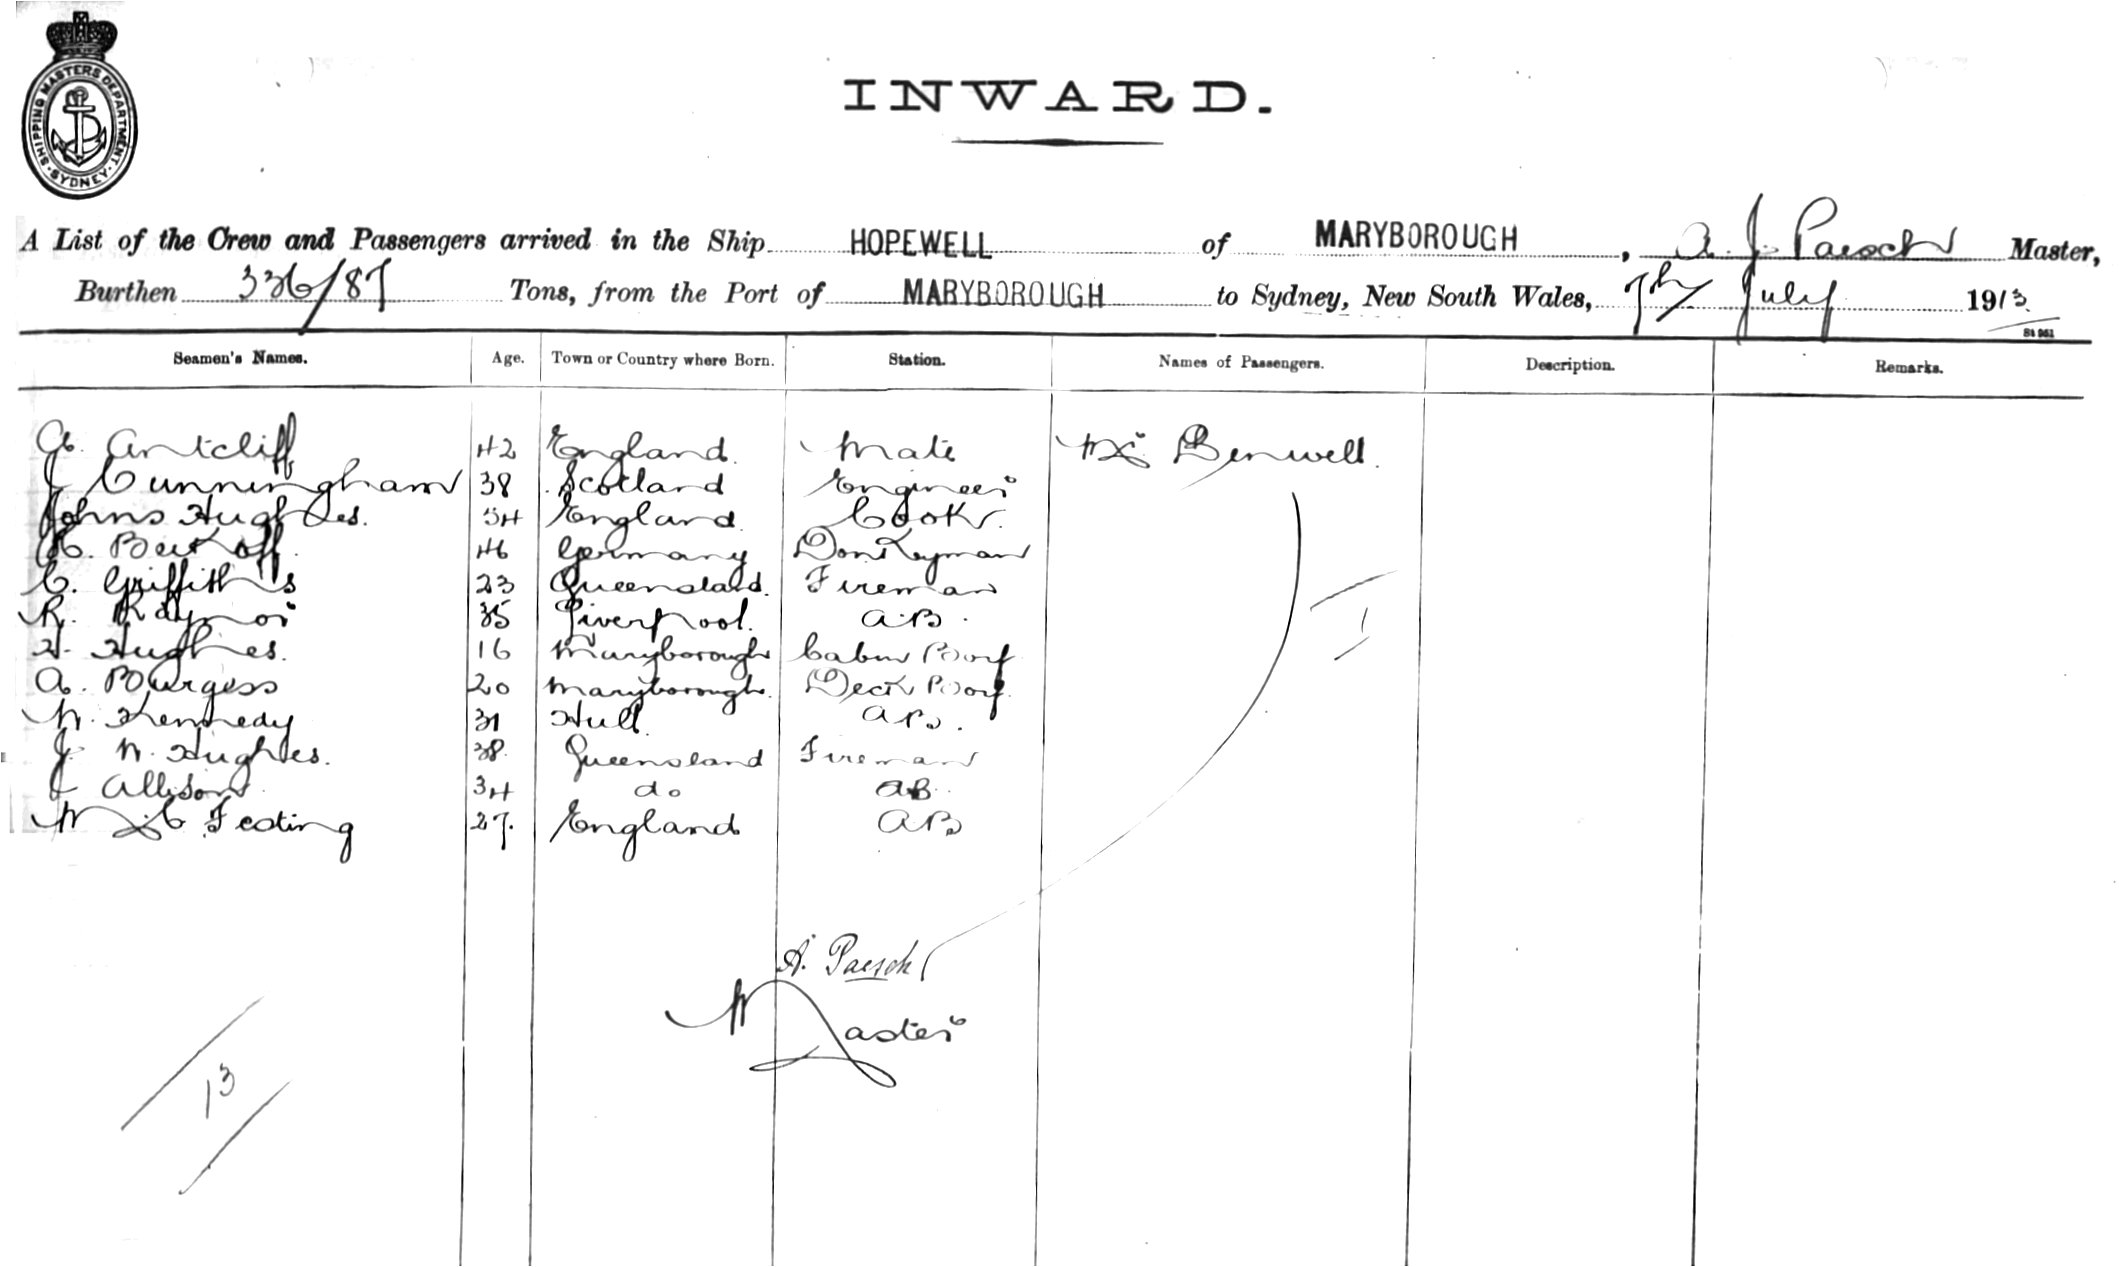 SHIPPING MASTERS DEPARTMENT
SYDNEY
INWARD.
A List of the Crew and Passengers arrived in the Ship HOPEWELL of MARYBOROUGH, A. J. Paesch Master,
Burthen 336/87 Tons, from the Port of MARYBOROUGH to Sydney, New South Wales, 7th July 1913
St 951
Seamen's Names. Age. Town or Country where Born. Station. Names of Passengers. Description. Remarks.
A. Antcliff 42 England. Mate Mr. Benwell.
J Cunningham 38 Scotland Engineer
Johns Hughes. 54 England. Cook.
46 Germany Donkeyman
C. Griffiths 23 Queensland. Fireman
R. Raynor 35 Liverpool. A.B.
H. Hughes. 16 Maryborough Cabin Boy
A. Burgess 20 Maryborough. Deck Boy.
W. Kennedy 31 Hull AB.
J. W. Hughes. 38. Queensland Fireman
J Allison 34 do AB.
Festing 27. England AB
1
A. Paesch
Master
13